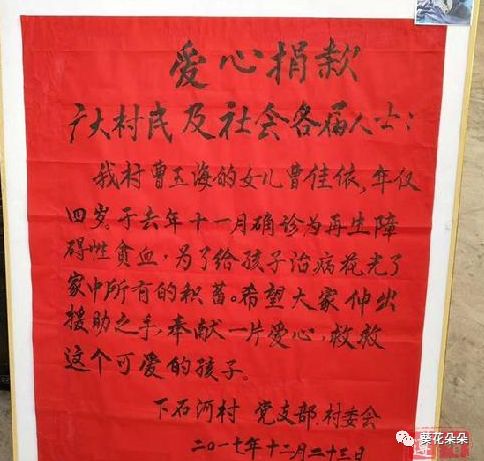 爱心捐款
广大村民及社会各届人士:
我村曹玉海的女儿曹佳依,年仅
四岁。于去年十一月确诊为再生障
碍性贫血,为了给孩子治病花光了
家中所有的积蓄。希望大家伸出
援助之手,奉献一片爱心,救救
这个可爱的孩子。
下石河村 党支部.村委会
二〇一七年十二月二十三日
葵花朵朵